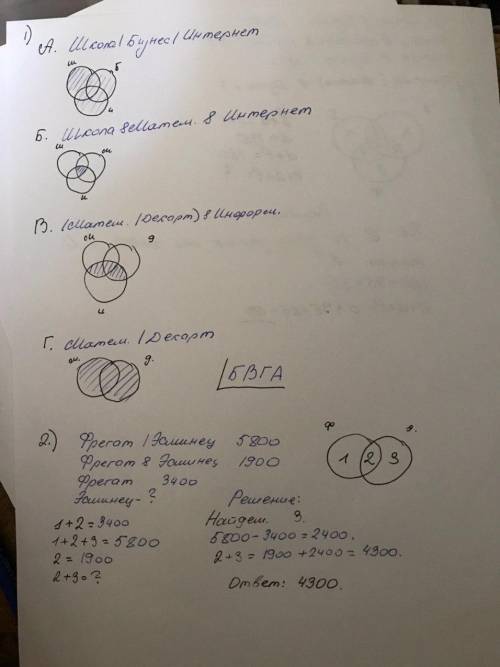 1)
А. Школа | Бизнес | Интернет
ш
б
и
Б. Школа & Матем. & Интернет
ш
м
и
В. (Матем. | Декарт) & Информ.
м
д
и
Г. Матем. | Декарт
м.
д.
БВГА
2.)
Фрегат | Эсминец 5800
Фрегат & Эсминец 1900
Фрегат 3400
Эсминец - ?
ф
э.
1 2 3
1+2=3400
1+2+3=5800
2=1900
2+3=?
Решение:
Найдем 3.
5800-3400=2400.
2+3=1900+2400=4300.
Ответ: 4300.